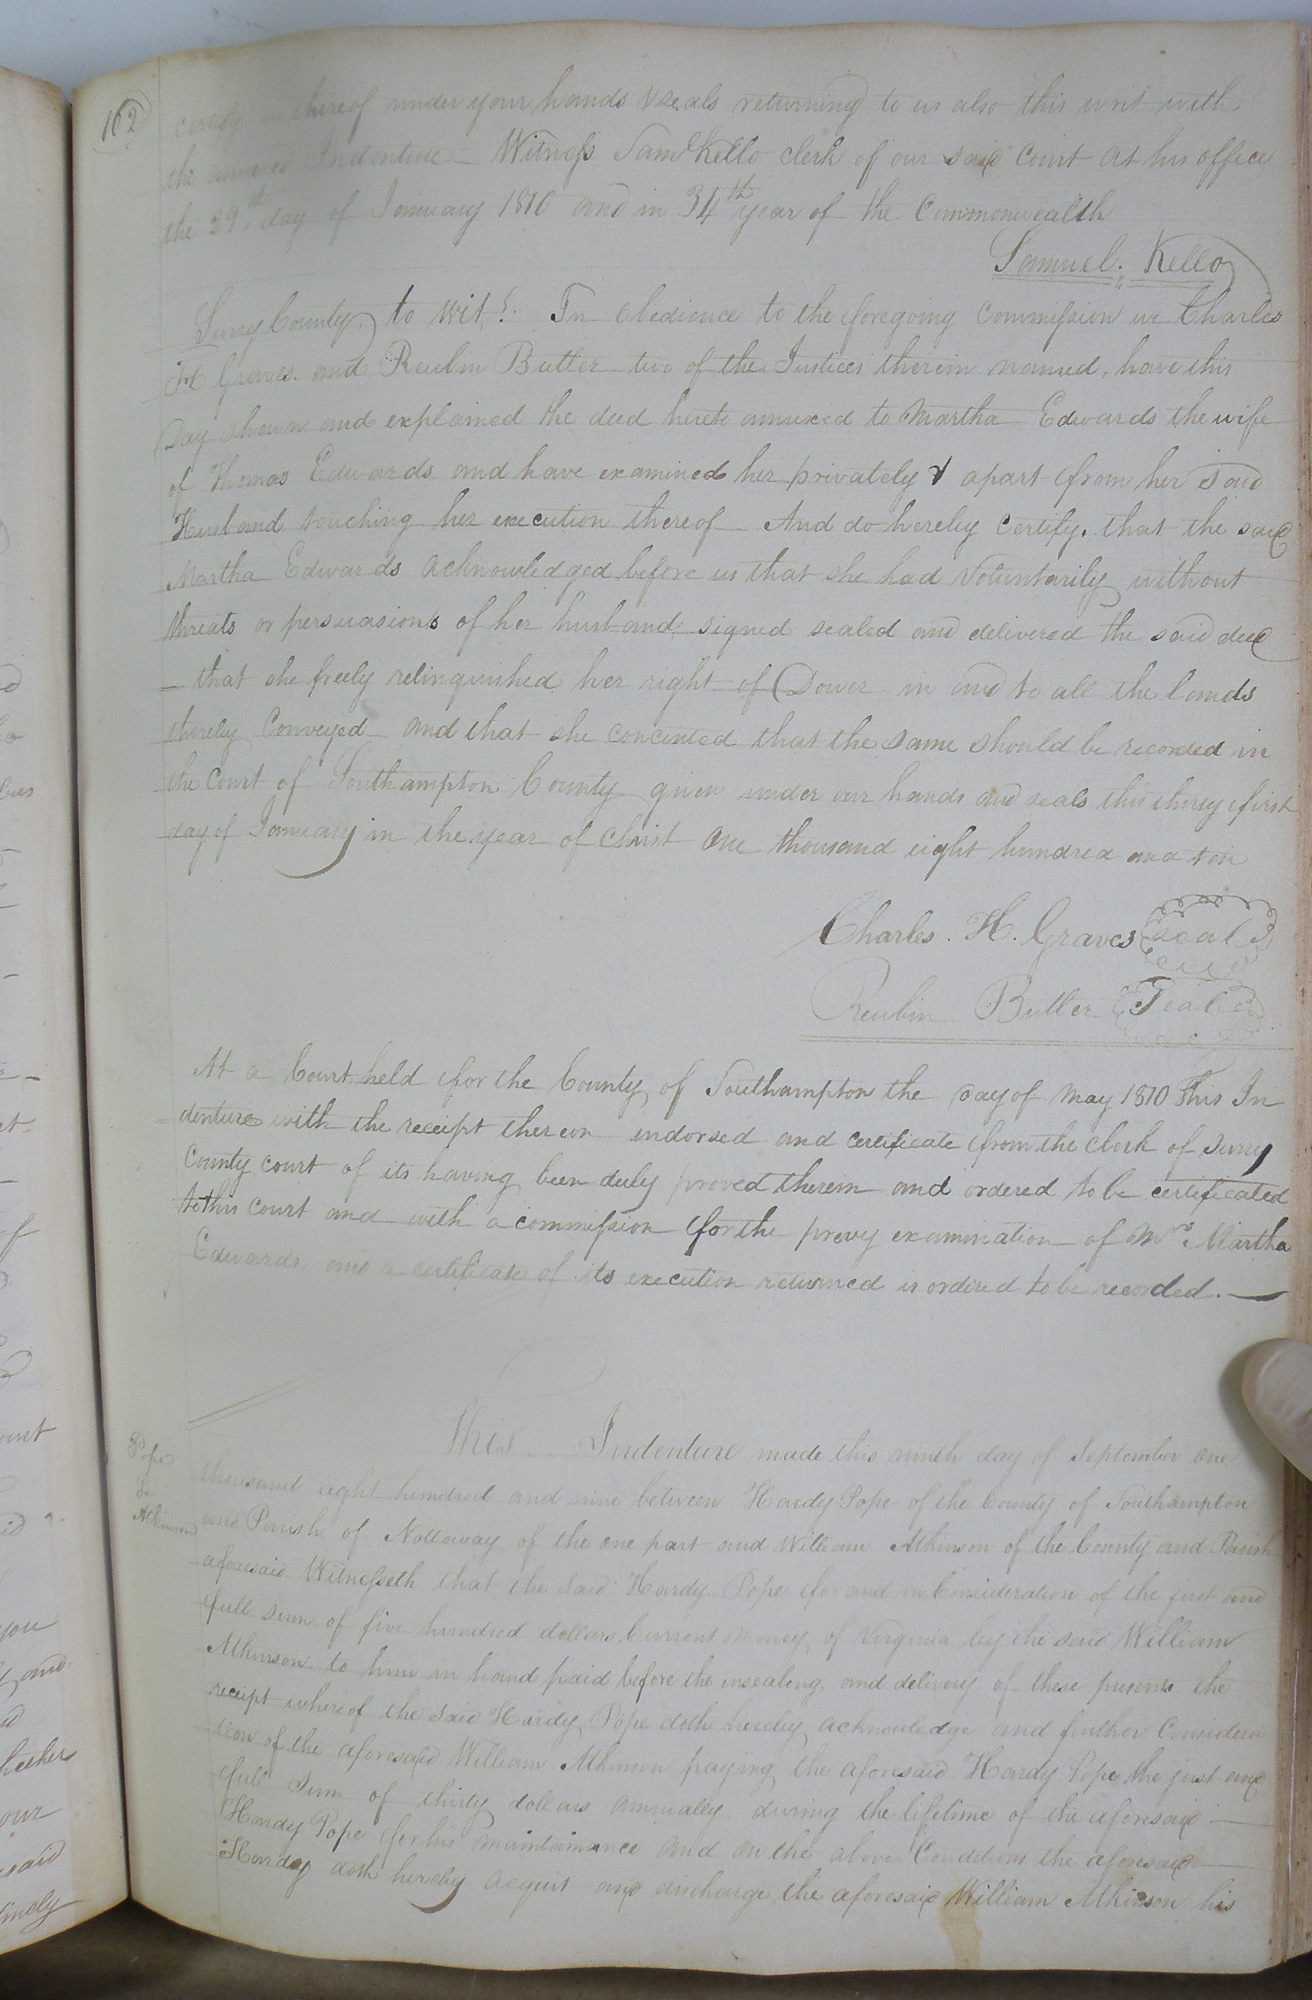 162
certify thereof under your hands & seals returning to us also this writ with
the annexed Indenture — Witness Saml Kello clerk of our said court at his office
the 29th day of January 1810 and in 34th year of the Commonwealth
Samuel. Kello
Surry County, to wit. In obedience to the foregoing commission we Charles
H Graves. and Reubin Butler two of the Justices therein named, have this
Day shewn and explained the deed hereto annexed to Martha Edwards the wife
of Thomas Edwards and have examined her privately & apart from her said
Husband touching her execution thereof And do hereby certify, that the said
Martha Edwards acknowledged before us that she had voluntarily without
threats or persuasions of her husband signed sealed and delivered the said deed
— that she freely relinquished her right of Dower in and to all the lands
thereby Conveyed and that she concented that the same should be recorded in
the Court of Southampton County given under our hands and seals this thirty first
day of January in the year of Christ One thousand eight hundred and ten
Charles. H. Graves seal
Reubin Butler Seal
At a Court held for the County of Southampton the day of May 1810 This In
denture with the receipt thereon endorsed and certificate from the clerk of Surry
County court of its having been duly proved therein and ordered to be certificated
to this court and with a commission for the prevy examination of Mrs Martha
Edwards, and a certificate of its execution returned is ordered to be recorded. —
This Indenture made this ninth day of September one
Pope
to
Atkinson
thousand eight hundred and nine between Hardy Pope of the County of Southampton
and Parish of Nottoway of the one part and William Atkinson of the County and Parish
aforesaid Witnesseth that the said Hardy Pope for and in Consideration of the just and
full sum of five hundred dollars Current money of Virginia by the said William
Atkinson to him in hand paid before the insealing and delivery of these presents the
receipt whereof the said Hardy Pope doth hereby acknowledge and further Considera
tion of the aforesaid William Atkinson paying the aforesaid Hardy Pope the just and
full sum of thirty dollars annually during the lifetime of the aforesaid
Hardy Pope for his maintainance and on the above Conditions the aforesaid
Hardy doth hereby acquit and discharge the aforesaid William Atkinson his